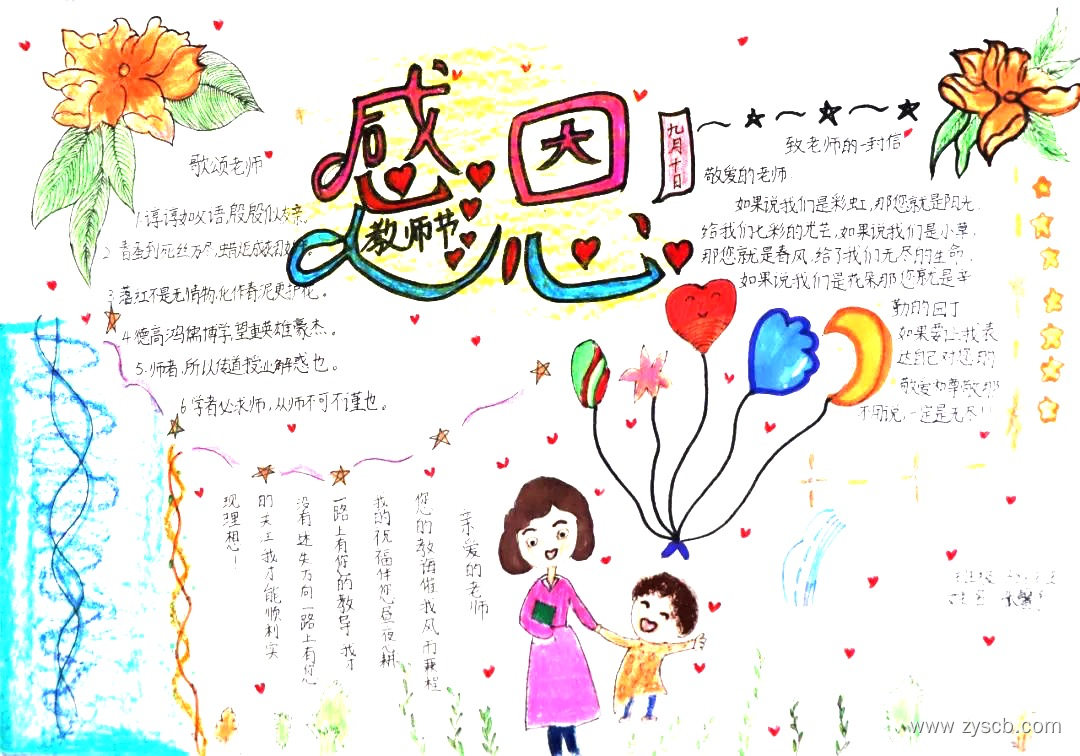 感恩
大
心
教师节
九月十日
歌颂老师
1谆谆如父语,殷殷似友亲。
2 春蚕到死丝方尽,蜡炬成灰泪
3 落红不是无情物,化作春泥更护花。
4.德高鸿儒博学,望重英雄豪杰。
5.师者,所以传道授业解惑也。
6.学者必求师,从师不可不谨也。
致老师的一封信
敬爱的老师
如果说我们是彩虹,那您就是阳光,
给我们七彩的光芒,如果说我们是小草,
那您就是春风,给了我们无尽的生命,
如果说我们是花朵那您就是辛
勤的园丁
如果要让我表
达自己对您的
敬爱和尊敬那
不用说一定是无尽!!
亲爱的老师
您的教诲催我风雨兼程
我的祝福伴您昼夜耕
一路上有您的教导,我才
没有迷失方向一路上有您
的关注我才能顺利实
现理想!
班级
姓名
www.zyscb.com